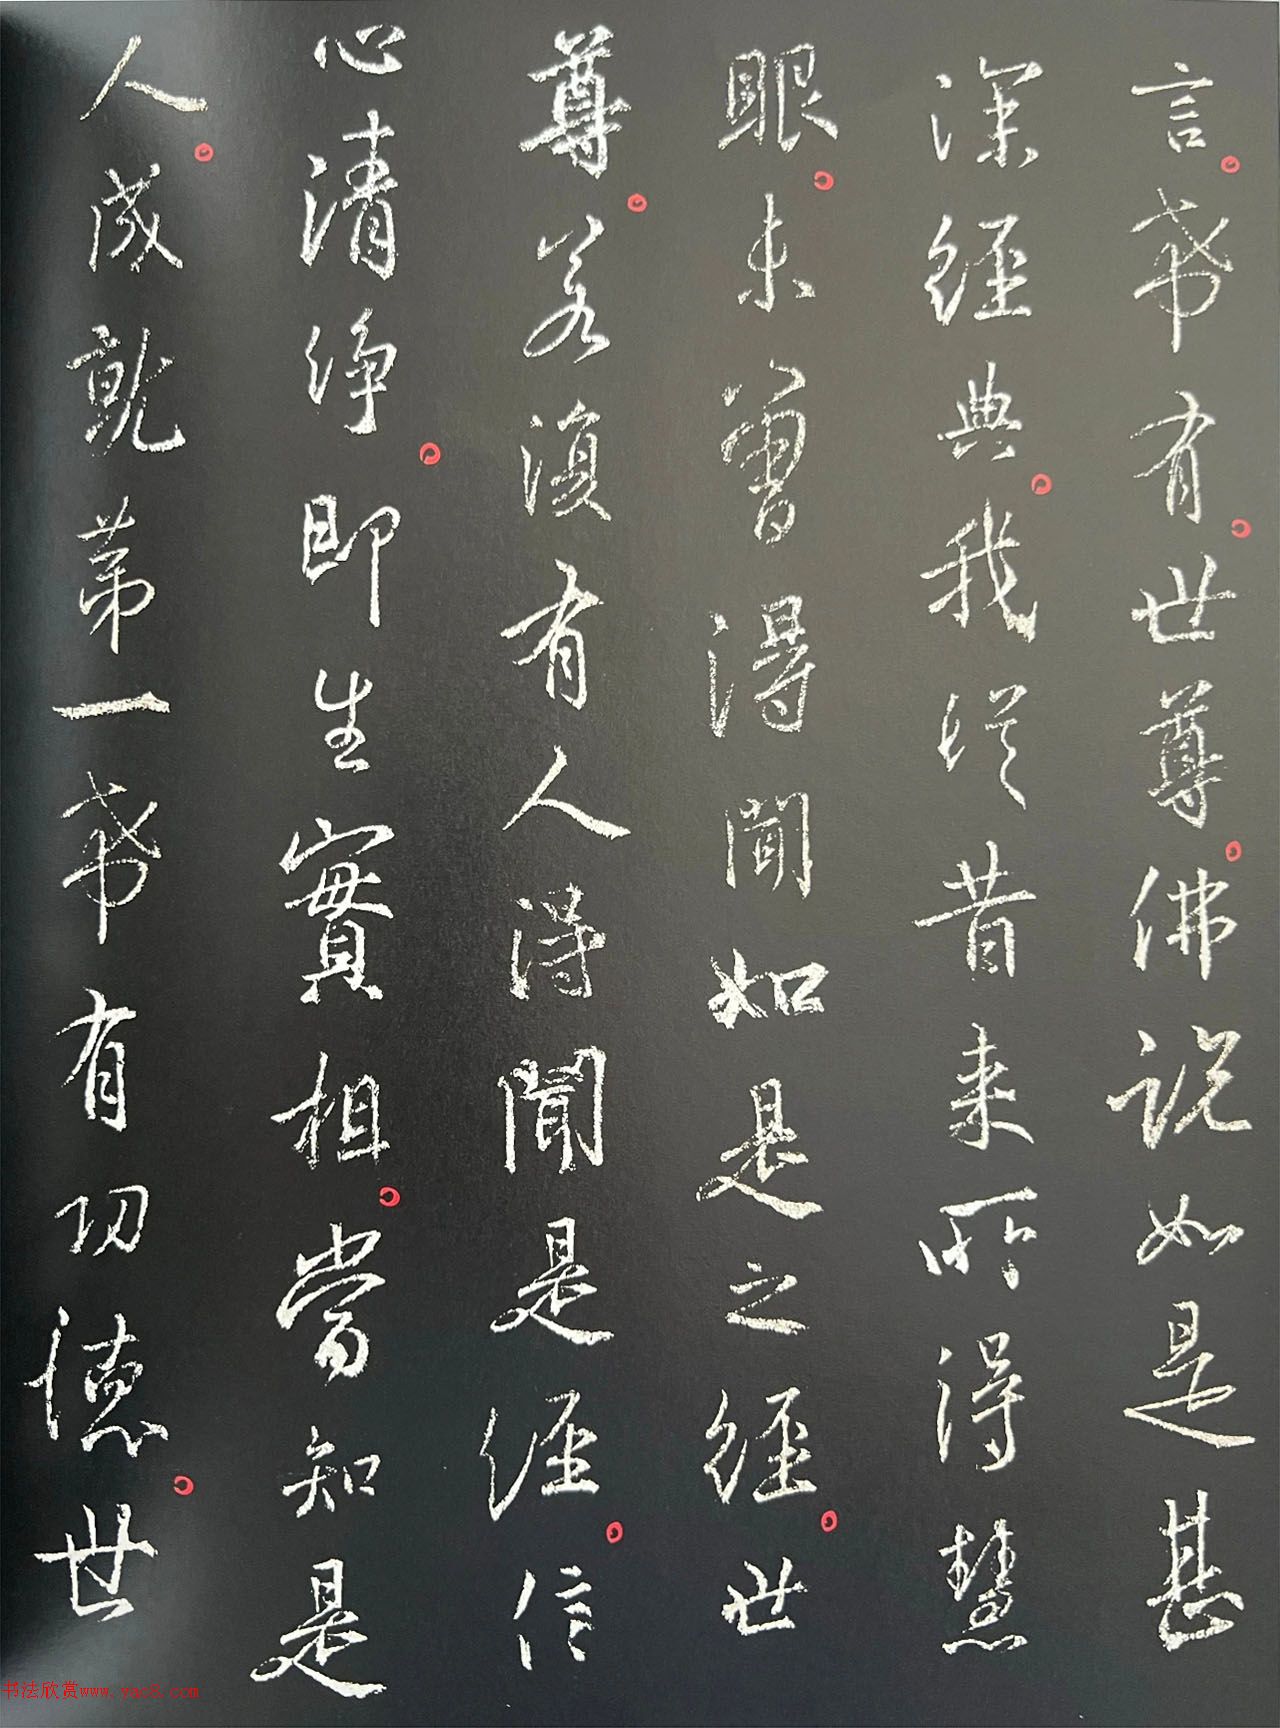 言。希有。世尊。佛說如是甚
深經典。我從昔來所得慧
眼。未曾得聞如是之經。世
尊。若須有人得聞是經。信
心清淨。即生實相。當知是
人。成就第一希有功德。世
书法欣赏www.yac8.com